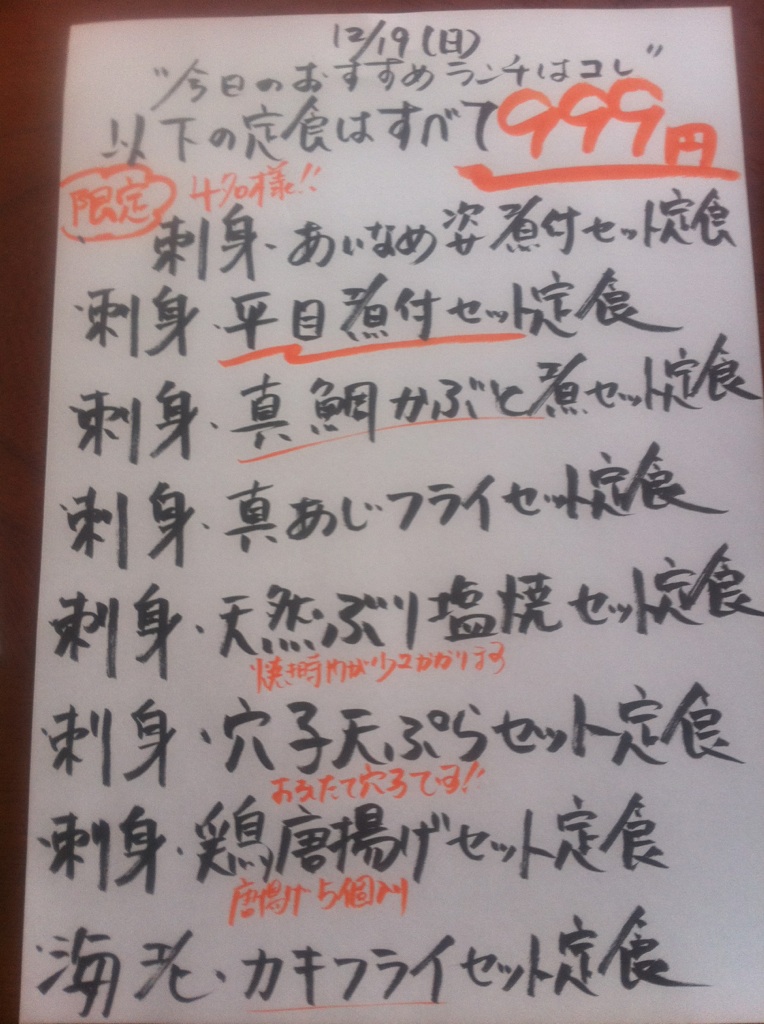 12/19(日)
"今日のおすすめランチはコレ"
以下の定食はすべて999円
限定 4名様!!
刺身・あいなめ姿煮付セット定食
刺身・平目煮付セット定食
刺身・真鯛かぶと煮セット定食
刺身・真あじフライセット定食
刺身・天然ぶり塩焼セット定食
焼き時間が少々かかります
刺身・穴子天ぷらセット定食
穴子です!!
刺身・鶏唐揚げセット定食
唐揚げ5個入り
海老・カキフライセット定食